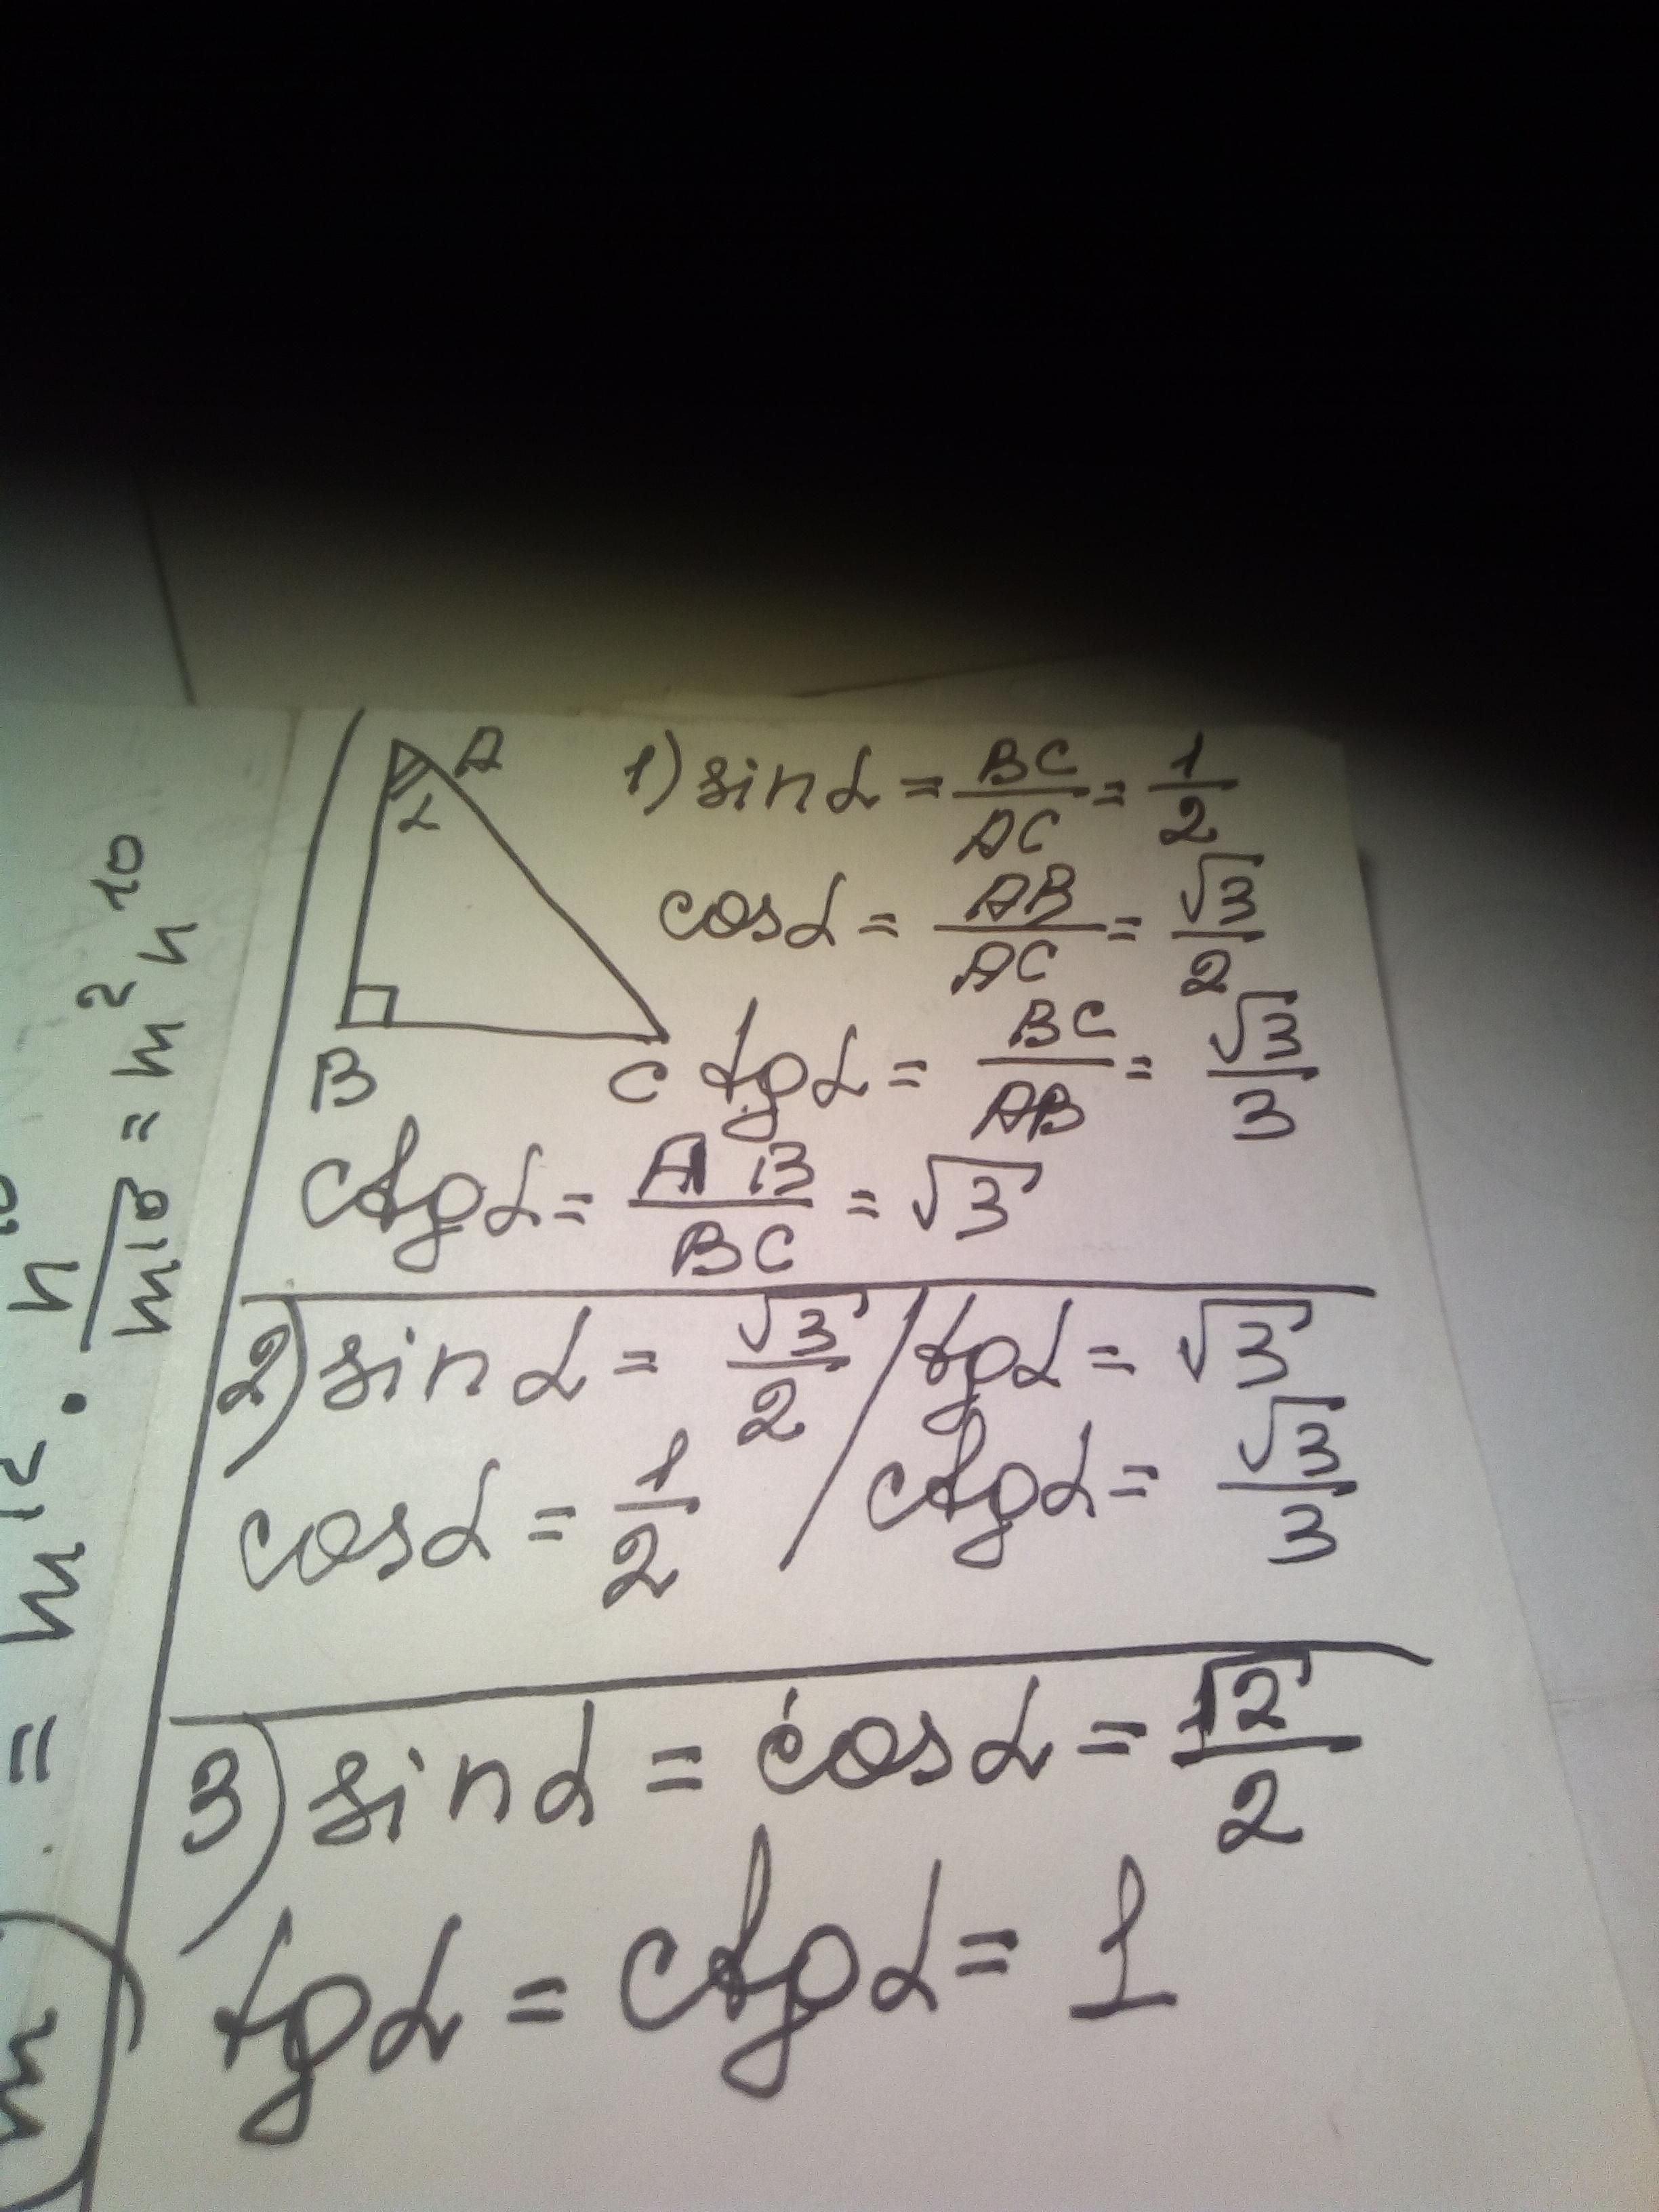 A
α
B
C
1) sin α = BC/AC = 1/2
cos α = AB/AC = √3/2
tg α = BC/AB = √3/3
ctg α = AB/BC = √3
2) sin α = √3/2 / tg α = √3
cos α = 1/2 / ctg α = √3/3
3) sin α = cos α = √2/2
tg α = ctg α = 1
= m² n¹⁰